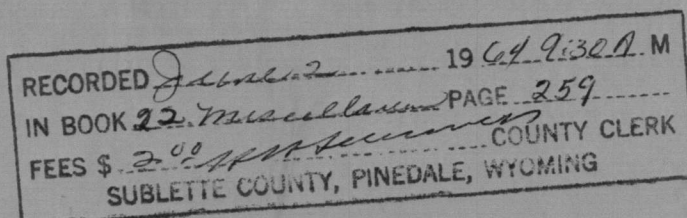 RECORDED June 2 1964 9:30 A M
IN BOOK 22 Miscellaneous PAGE 259
FEES $ 2.00 COUNTY CLERK
SUBLETTE COUNTY, PINEDALE, WYOMING